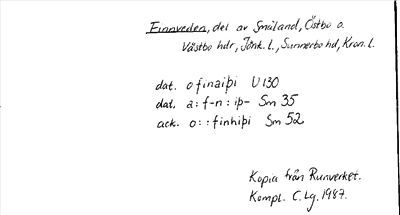 Finnveden, del av Småland, Östbo o.
Västbo hdr, Jönk. l., Sunnerbo hd, Kron. l.
dat. o finaiþi U 130
dat. a : f-n : iþ- Sm 35
ack. o : : finhiþi Sm 52
Kopia från Runverket.
Kompl. C. Lg. 1987.